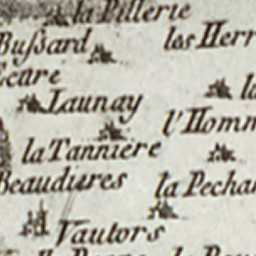 la Pillerie
Bussard
les Herr
Launay
l'Homm
la Tanniere
Beaudieres
la Pechar
Vautors